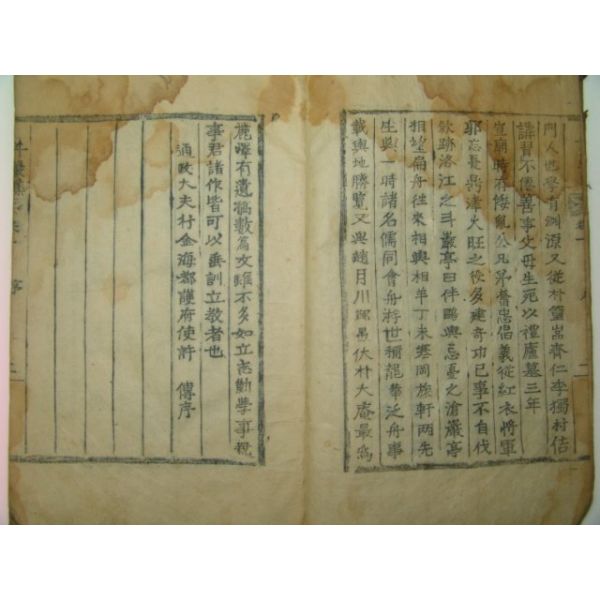 門人也學有淵源又從朴篁嵒齊仁李獨村佶
講習不倦善事父母生死以禮廬墓三年
宣廟時有倭亂公凡弟奮忠倡義從紅衣將軍
郭忘憂鼎津火旺之役多建奇功已事不自伐
歛跡洛江之斗巖亭曰伴鷗與忘憂之滄巖亭
相望扁舟往來相與相羊丁未寒岡旅軒兩先
生與一時諸名儒同會舟將世稱龍華泛舟事
載輿地勝覽又與趙月川 伏朴大庵最爲
麗澤有遺稿數爲文雖不多如立志勤學事親
事君諸作皆可以垂訓立教者也
通政大夫行金海都護府使許 傳序